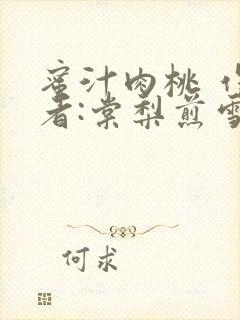 蜜汁肉桃 作
者:棠梨煎雪
何求